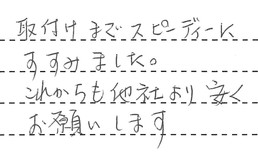 取付けまでスピーディーに
すすみました。
これからも他社より安く
お願いします